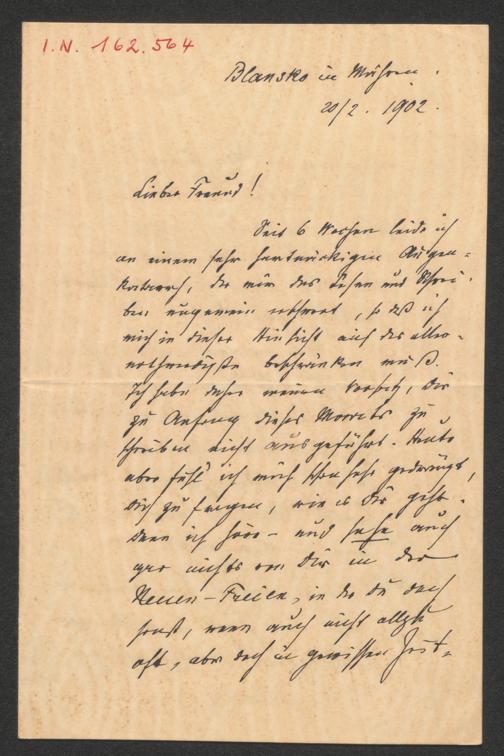 I.N. 162.564
Blansko in Mähren.
20/2. 1902.
Lieber Freund!
Seit 6 Wochen leide ich
an einem sehr hartnäckigen Augen-
katarrh, der mir das Lesen und Schrei-
ben ungemein erschwert, so daß ich
mich in dieser Hinsicht auf das aller-
nothwendigste beschränken muß.
Ich habe daher meinen Vorsatz, Dir
zu Anfang dieses Monats zu
schreiben nicht ausgeführt. Heute
aber fühl' ich mich schon sehr gedrängt,
Dich zu fragen, wie es Dir geht.
Denn ich höre – und sehe auch
gar nichts von Dir in der
Neuen-Freien, in der Du doch
sonst, wenn auch nicht allzu
oft, aber doch in gewissen Zeit-